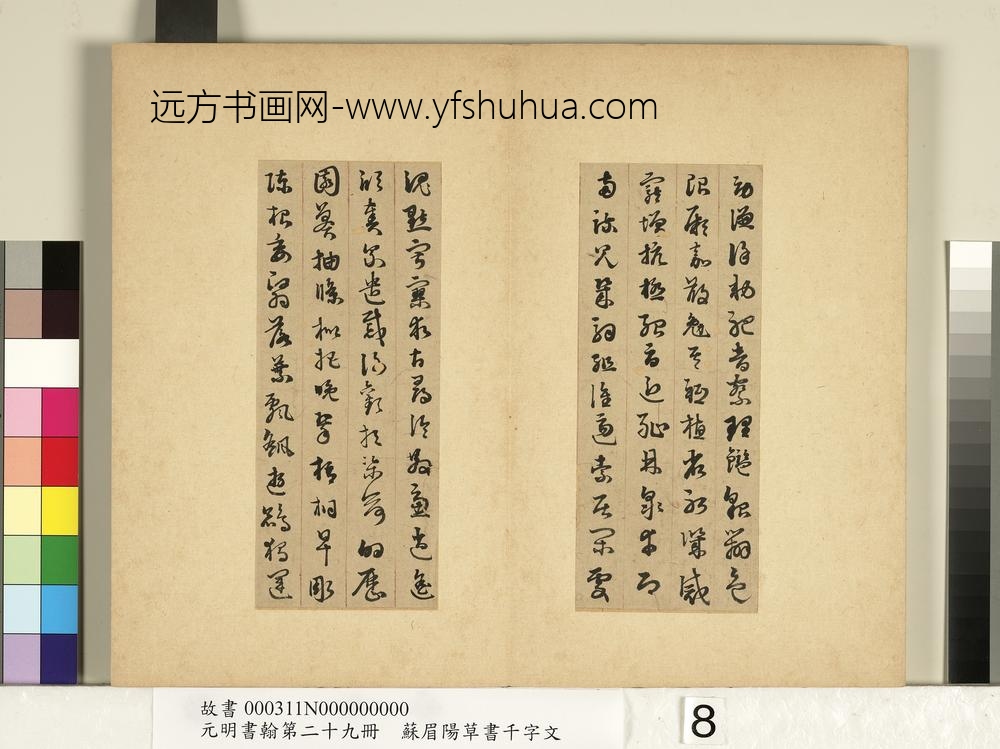 远方书画网-www.yfshuhua.com
勞謙謹勅聆音察理鑑貌辯色
貽厥嘉猷勉其祗植省躬譏誡
寵增抗極殆辱近恥林皋幸即
兩疏見機解組誰逼索居閑處
沉默寂寥求古尋論散慮逍遙
欣奏累遣慼謝歡招渠荷的歷
園莽抽條枇杷晚翠梧桐早彫
陳根委翳落葉飄颻遊鵾獨運
故書 000311N000000000
元明書翰第二十九冊 蘇眉陽草書千字文
8